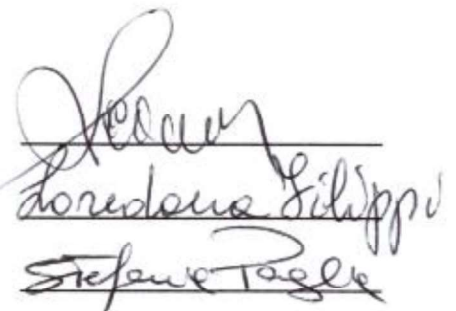 Loredana Filippi
Stefania Paglia